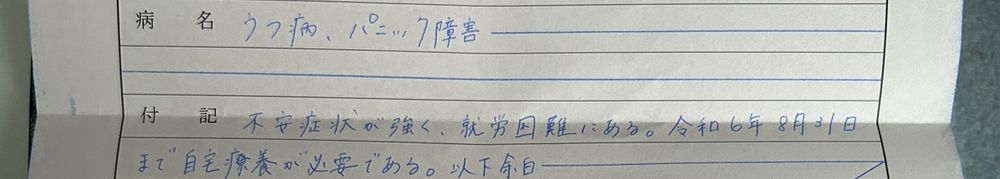 病名 うつ病、パニック障害
付記 不安症状が強く、就労困難にある。令和6年8月31日
まで自宅療養が必要である。以下余白